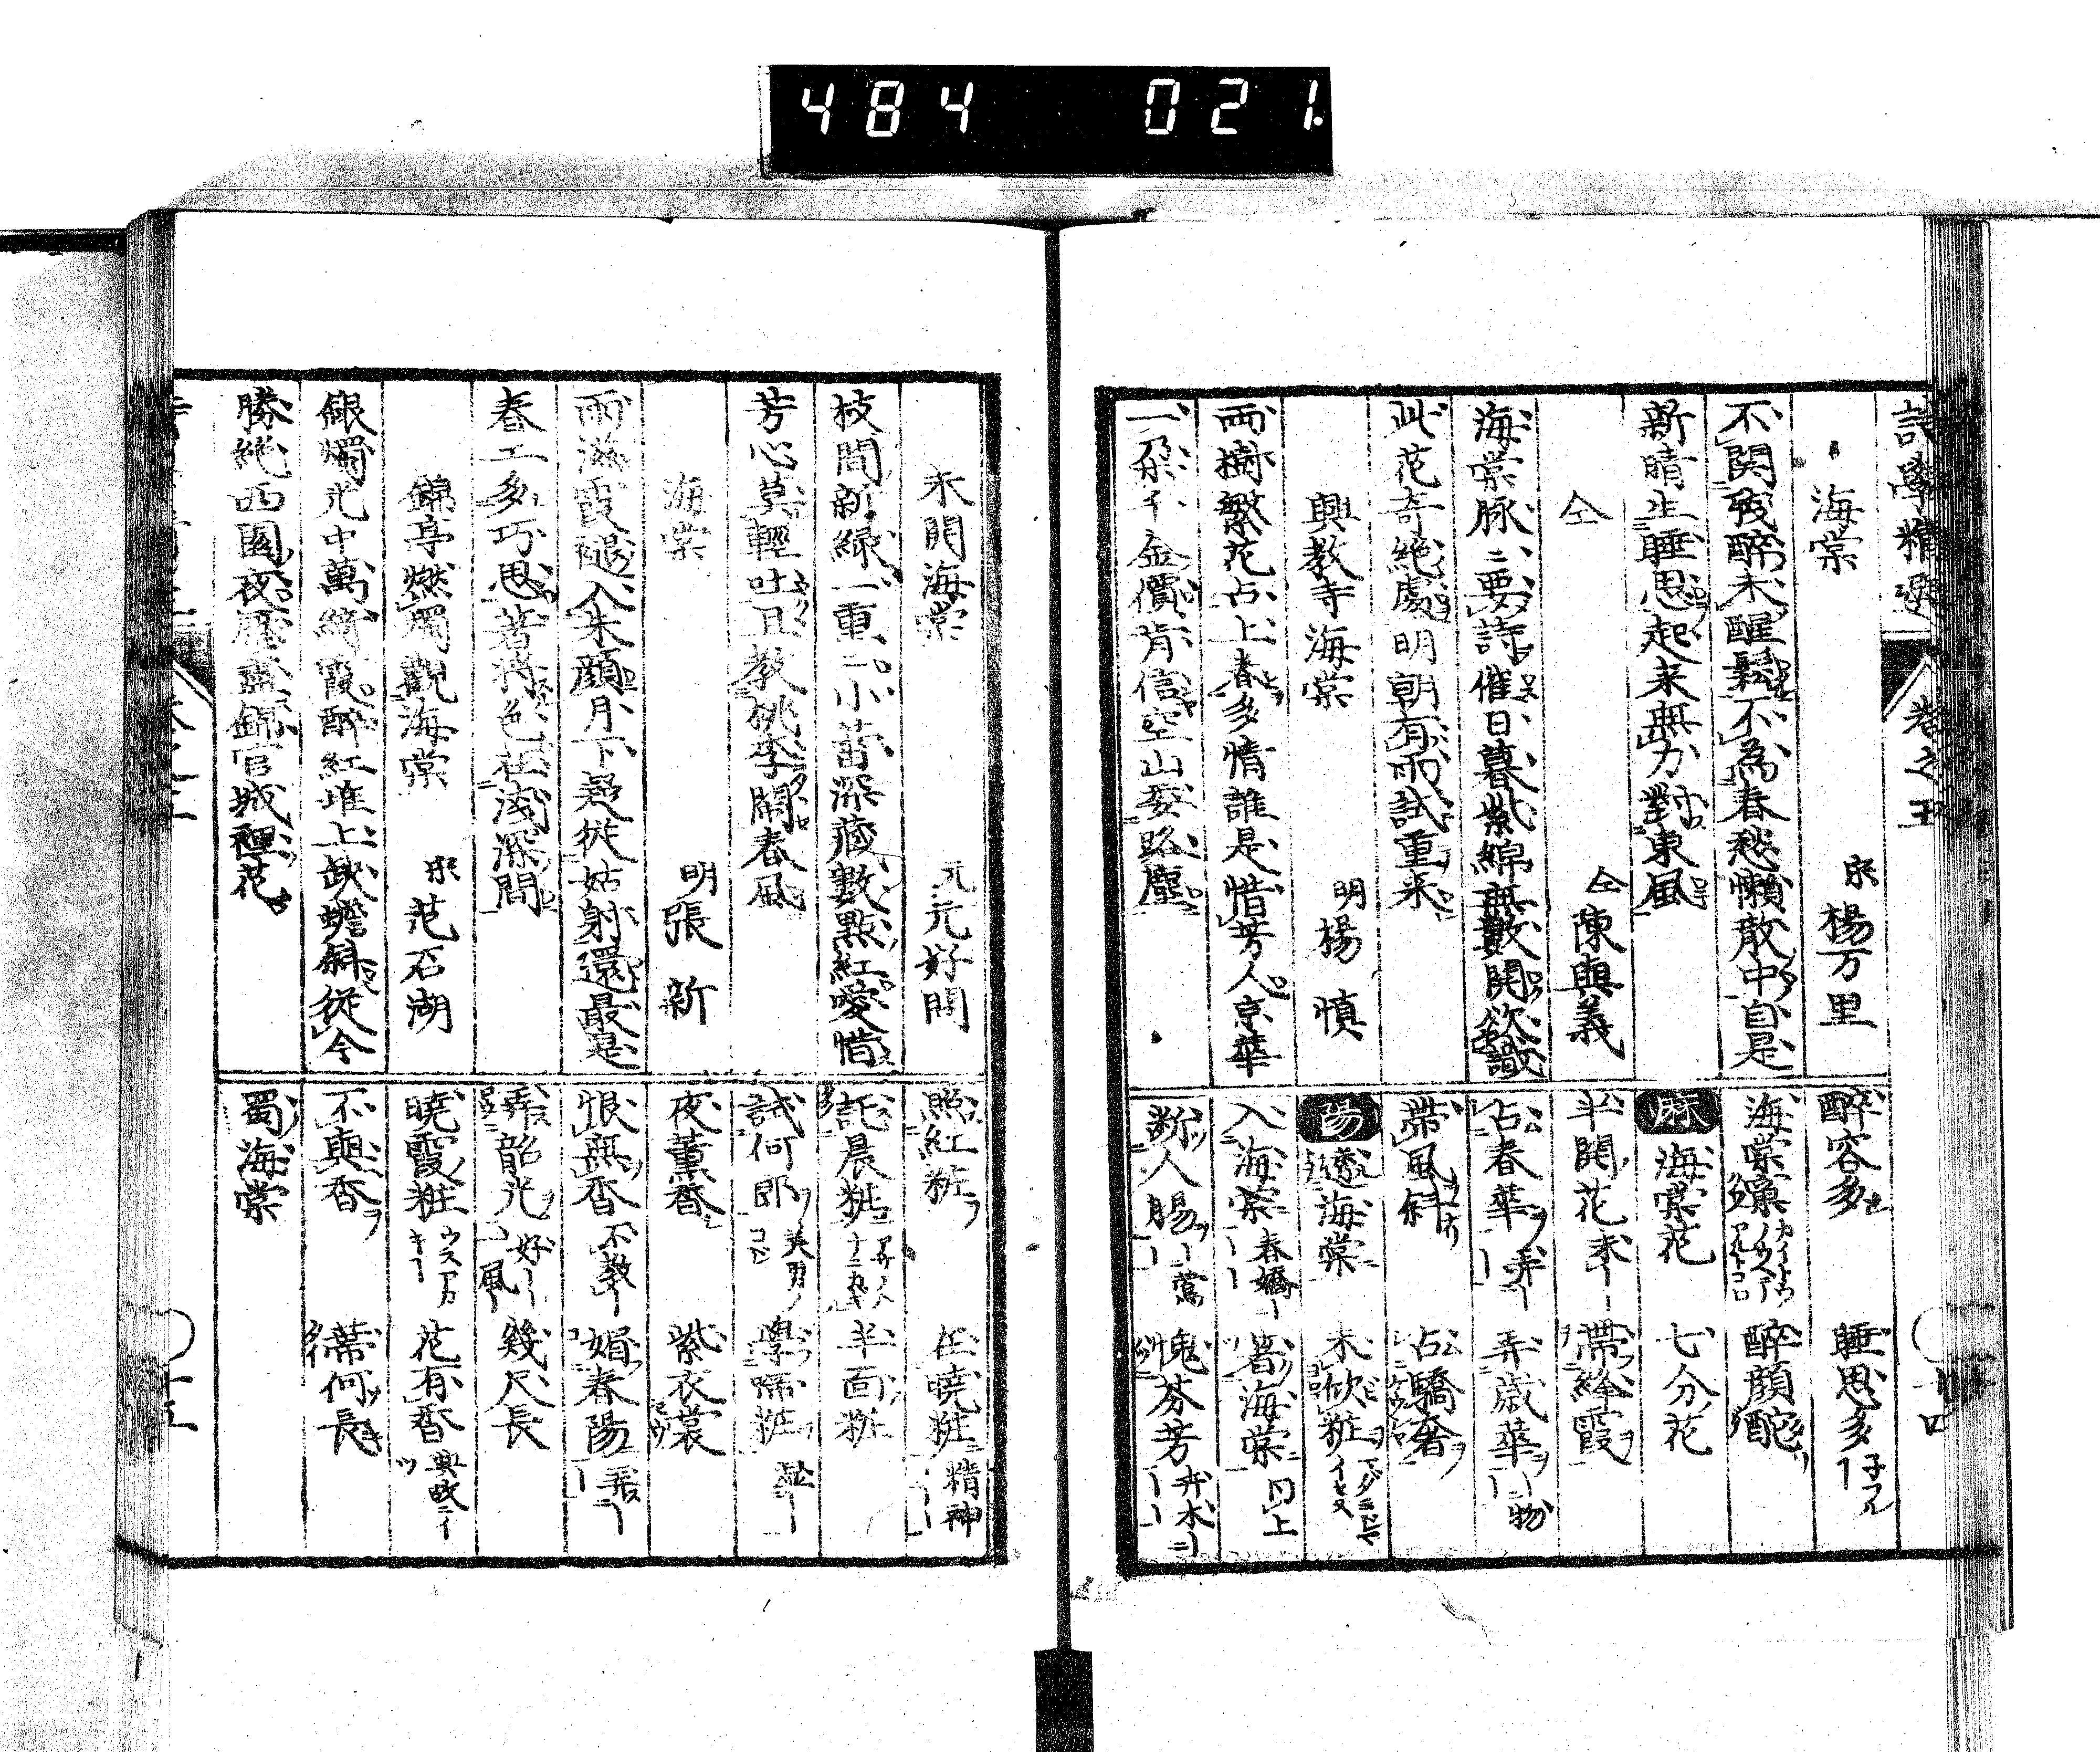 484 021
詩學精選 卷之五
海棠 宋 楊万里
不関殘醉未醒鬆不為春愁懶散中自是
新晴生睡思起来無力對東風
仝 仝 陳與義
海棠脉ニ要詩催日暮紫綿無數開欲識
此花奇絶處明朝有雨試重来
興教寺海棠 明 楊慎
両樹繁花占上春多情誰是惜芳人京華
一朶千金價肯信空山委路塵
醉容多 睡思多
海棠窠 醉顔酡
麻 海棠花 七分花
半開花 帶絳霞
占春華 弄歳華
帶風斜 占驕奢
陽 透海棠 未欣粧
入海棠 春嬌 著海棠 月上
断人腸 愧芬芳
未開海棠 元 元好問
枝間新緑一重ニ小蕾深藏數點紅愛惜
芳心莫輕吐且教桃李鬧春風
海棠 明 張新
雨滋霞褪入朱顔月下疑從姑射還最是
春工多巧思著将色在浅深間
錦亭燃燭觀海棠 宋 范石湖
銀燭光中萬綺霞醉紅堆上缺蟾斜從今
勝絶西園夜壓盡錦官城裡花
照紅粧 任曉粧 精神
託晨粧 半面粧
試何郎 美男 學啼粧
夜薫香 紫衣裳
恨無香 不教 媚春陽
弄韶光 幾尺長
曉霞粧 花有香
不與香 蒂何長
蜀海棠